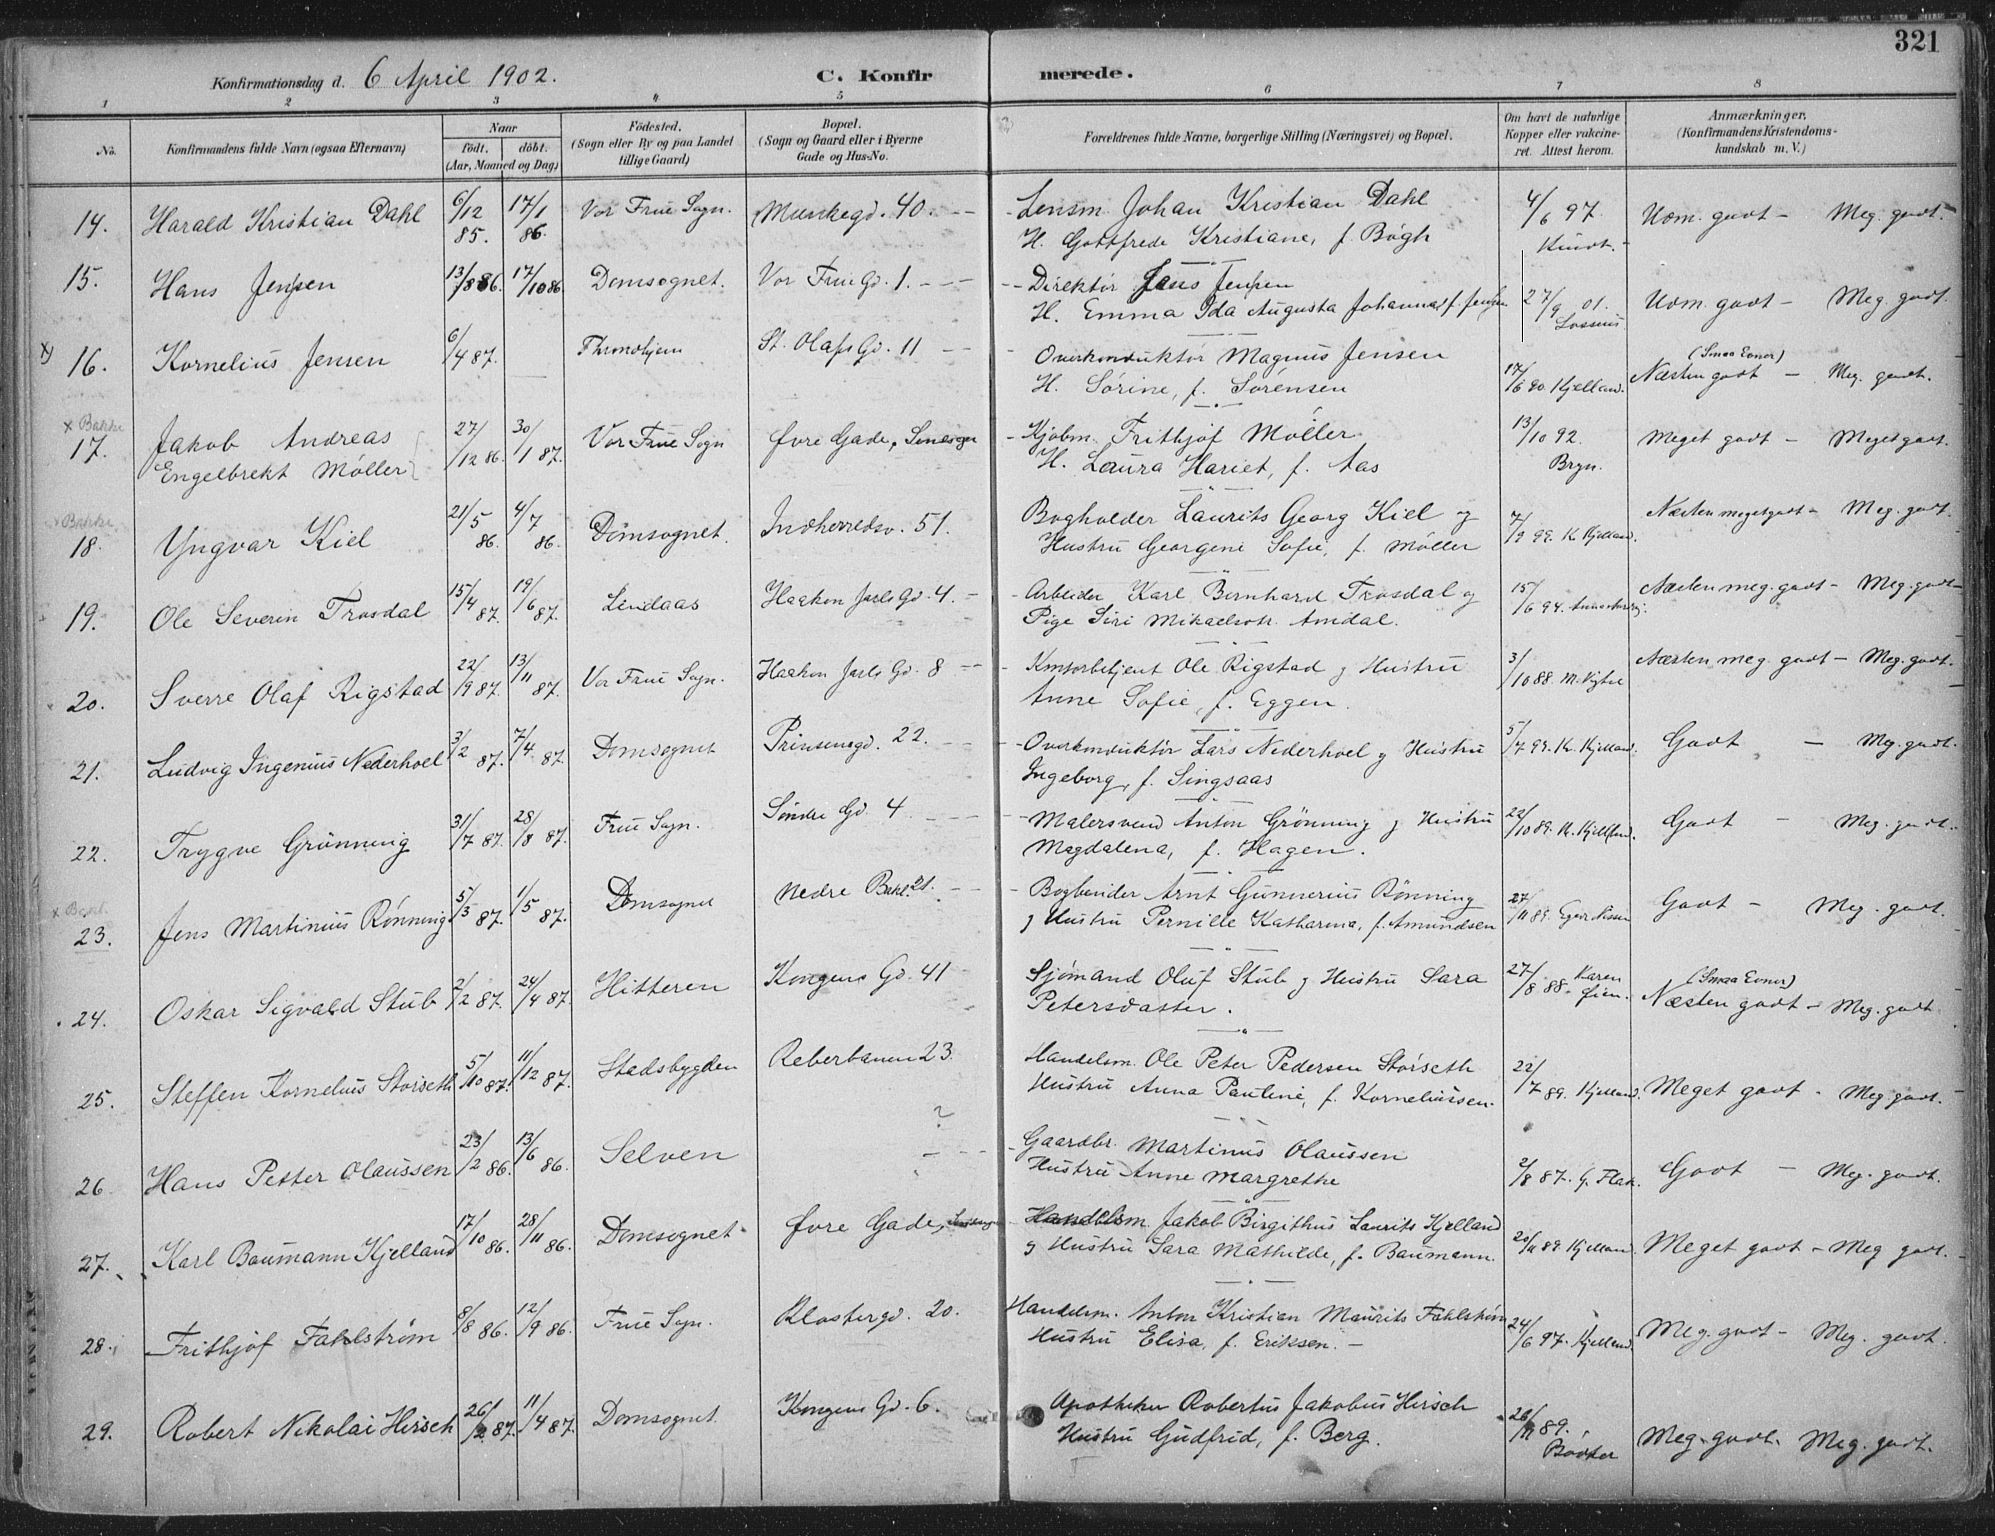 321
Konfirmationsdag d. 6 April 1902. C. Konfirmerede.
1 2 3 4 5 6 7 8
No. Konfirmandens fulde Navn (ogsaa Efternavn) Naar født. døbt. (Aar, Maaned og Dag) Fødested. (Sogn eller By og paa Landet tillige Gaard) Bopæl. (Sogn og Gaard eller i Byerne Gade og Hus-No. Forældrenes fulde Navne, borgerlige Stilling (Næringsvei) og Bopæl. Om havt de naturlige Kopper eller vaccineret. Attest herom. Anmærkninger. (Konfirmandens Kristendomskundskab m. V.)
14. Harald Kristian Dahl 6/12 85. 17/1 86. Vor Frue Sogn. Munkegd. 40. Lensm. Johan Kristian Dahl 4/6 97. Udm. godt - Meg. godt.
H. Gottfrede Kristiane, f. Bøgh
15. Hans Jensen 13/8 86. 17/10 86. Domsognet. Vor Frue Gd. 1. Direktør Jens Jensen 27/9 01. Udm. godt - Meg. godt.
H. Emma Ida Augusta Johanna, f. Jensen
16. Kornelius Jensen 6/4 87. Throndhjem St. Olafs Gd. 11 Overkonduktør Magnus Jensen (Smaa Evner)
H. Sørine, f. Sørensen 17/6 90. Kjelland. Næsten godt - Meg. godt.
x Bakke
17. Jakob Andreas 27/12 86. 30/1 87. Vor Frue Sogn Øvre Gade, Kjøbm. Frithjof Møller 13/10 92. Meget godt - Meget godt.
Engelbrekt Møller H. Laura Hariet, f. Aas Bryn.
x Bakke
18. Yngvar Kiel 21/5 86. 4/7 86. Domsognet. Indherredsv. 51. Bogholder Laurits Georg Kiel og 7/9 99. K. Kjelland. Næsten meget godt - Meg. godt.
Hustru Georgene Sofie, f. Møller
19. Ole Severin Trosdal 15/4 87. 19/6 87. Lindaas Haakon Jarls Gd. 4. Arbeider Karl Bernhard Trosdal og 15/6 94. Næsten meg. godt - Meg. godt
Pige Siri Mikaelsdtr. Amdal.
20. Sverre Olaf Rigstad 22/9 87. 13/11 87. Vor Frue Sogn. Haakon Jarls Gd. 8 Kontorbetjent Ole Rigstad og Hustru 3/10 88. Næsten meg. godt - Meg. godt.
Anne Sofie, f. Eggen.
21. Ludvig Ingenius Nederhoel 3/2 87. 7/4 87. Domsognet Prinsensgd. 22. Overkonduktør Lars Nederhoel og Hustru 5/7 99. K. Kjelland. Godt - Meg. godt.
Ingeborg, f. Singsaas
22. Trygve Grønning 31/7 87. 28/8 87. Frue Sogn. Søndre Gd. 4 Malersvend Anton Grønning og Hustru 22/10 89. K. Kjelland. Godt - Meg. godt.
Magdalena, f. Hagen.
23. Jens Martinius Rønning 5/3 87. 1/5 87. Domsognet Nedre Bakl. 21. Bogbinder Arnt Gunnerius Rønning 27/11 89. Godt - Meg. godt.
og Hustru Pernille Katharina, f. Amundsen
24. Oskar Sigvald Stub 2/2 87. 24/4 87. Hitteren Kongens Gd. 41 Sjømand Oluf Stub og Hustru Sara 27/8 88. Karen (Smaa Evner)
Petersdatter. Næsten godt - Meg. godt
25. Steffen Kornelius Størseth 5/10 87. 11/12 87. Stadsbygden Reberbanen 23. Handelsm. Ole Peter Pedersen Størseth 22/7 89. Kjelland. Meget godt - Meg. godt.
Hustru Anna Pauline, f. Korneliussen.
?
26. Hans Petter Olaussen 23/2 86. 13/6 86. Selven - Gaardbr. Martinus Olaussen 2/8 87. G. Flak. Godt - Meg. godt.
Hustru Anne Margrethe
27. Karl Baumann Kjelland 17/10 86. 28/11 86. Domsognet Øvre Gade, Handelsm. Jakob Birgithus Laurits Kjelland 89 Kjelland Meget godt - Meg godt.
og Hustru Sara Mathilde, f. Baumann.
28. Frithjof Fahlstrøm 8/8 86. 12/9 86. Frue Sogn. Klostergd. 20. Handelsm. Anton Kristian Maurits Fahlstrøm 24/6 97. Kjelland Meg. godt - Meg. godt.
Hustru Elisa, f. Eriksen. -
29. Robert Nikolai Hirsch 26/2 87. 11/4 87. Domsognet. Kongens Gd. 6. Apotheker Robertus Jakobus Hirsch 26/11 89. Meg. godt. Meg. godt.
Hustru Gudfrid, f. Berg.